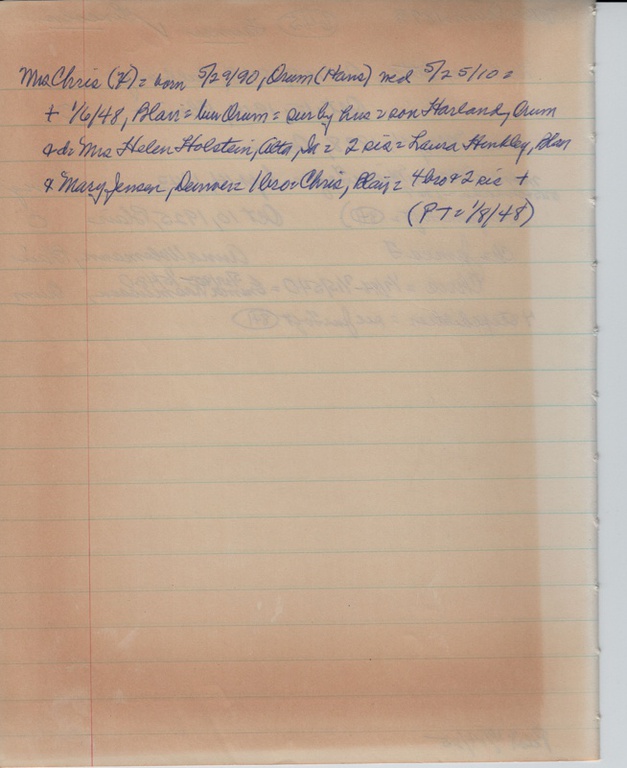 Mrs Chris (H) = born 5/29/90, Orum (Hans) med 5/25/10 =
+ 1/6/48, Blair = bur Orum = sur by hus = son Harland, Orum
& dr Mrs Helen Holstein, Alta, Ia = 2 sis = Laura Hinkley, Blair
& Mary Jensen, Denver = 1 bro = Chris, Blair = 4 bro & 2 sis +
(PT = 1/8/48)